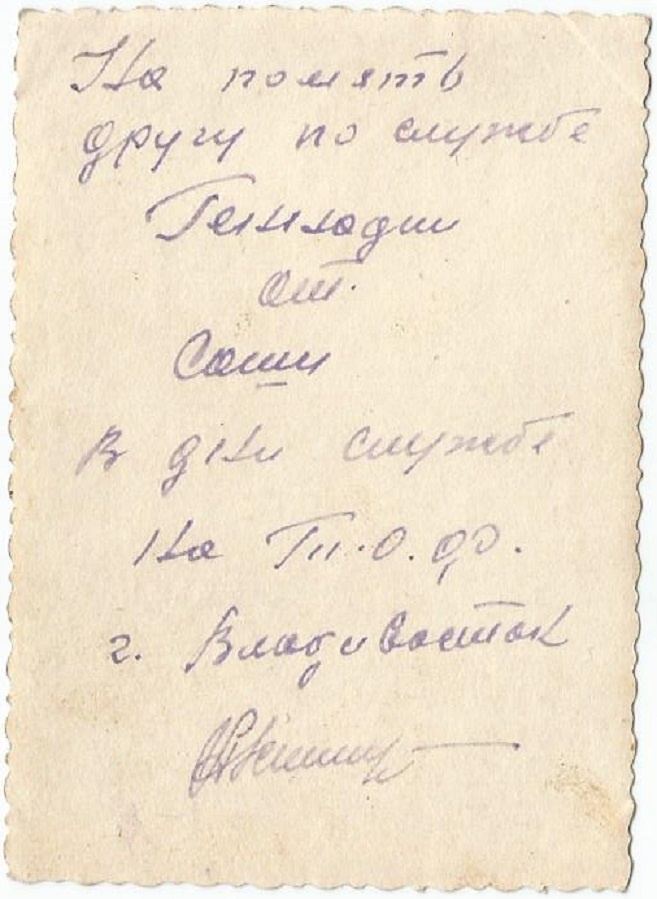 На помять
другу по службе
Геннадии
от
Саши
В дни службе
На Ти.О.Ф.
г. Владивосток